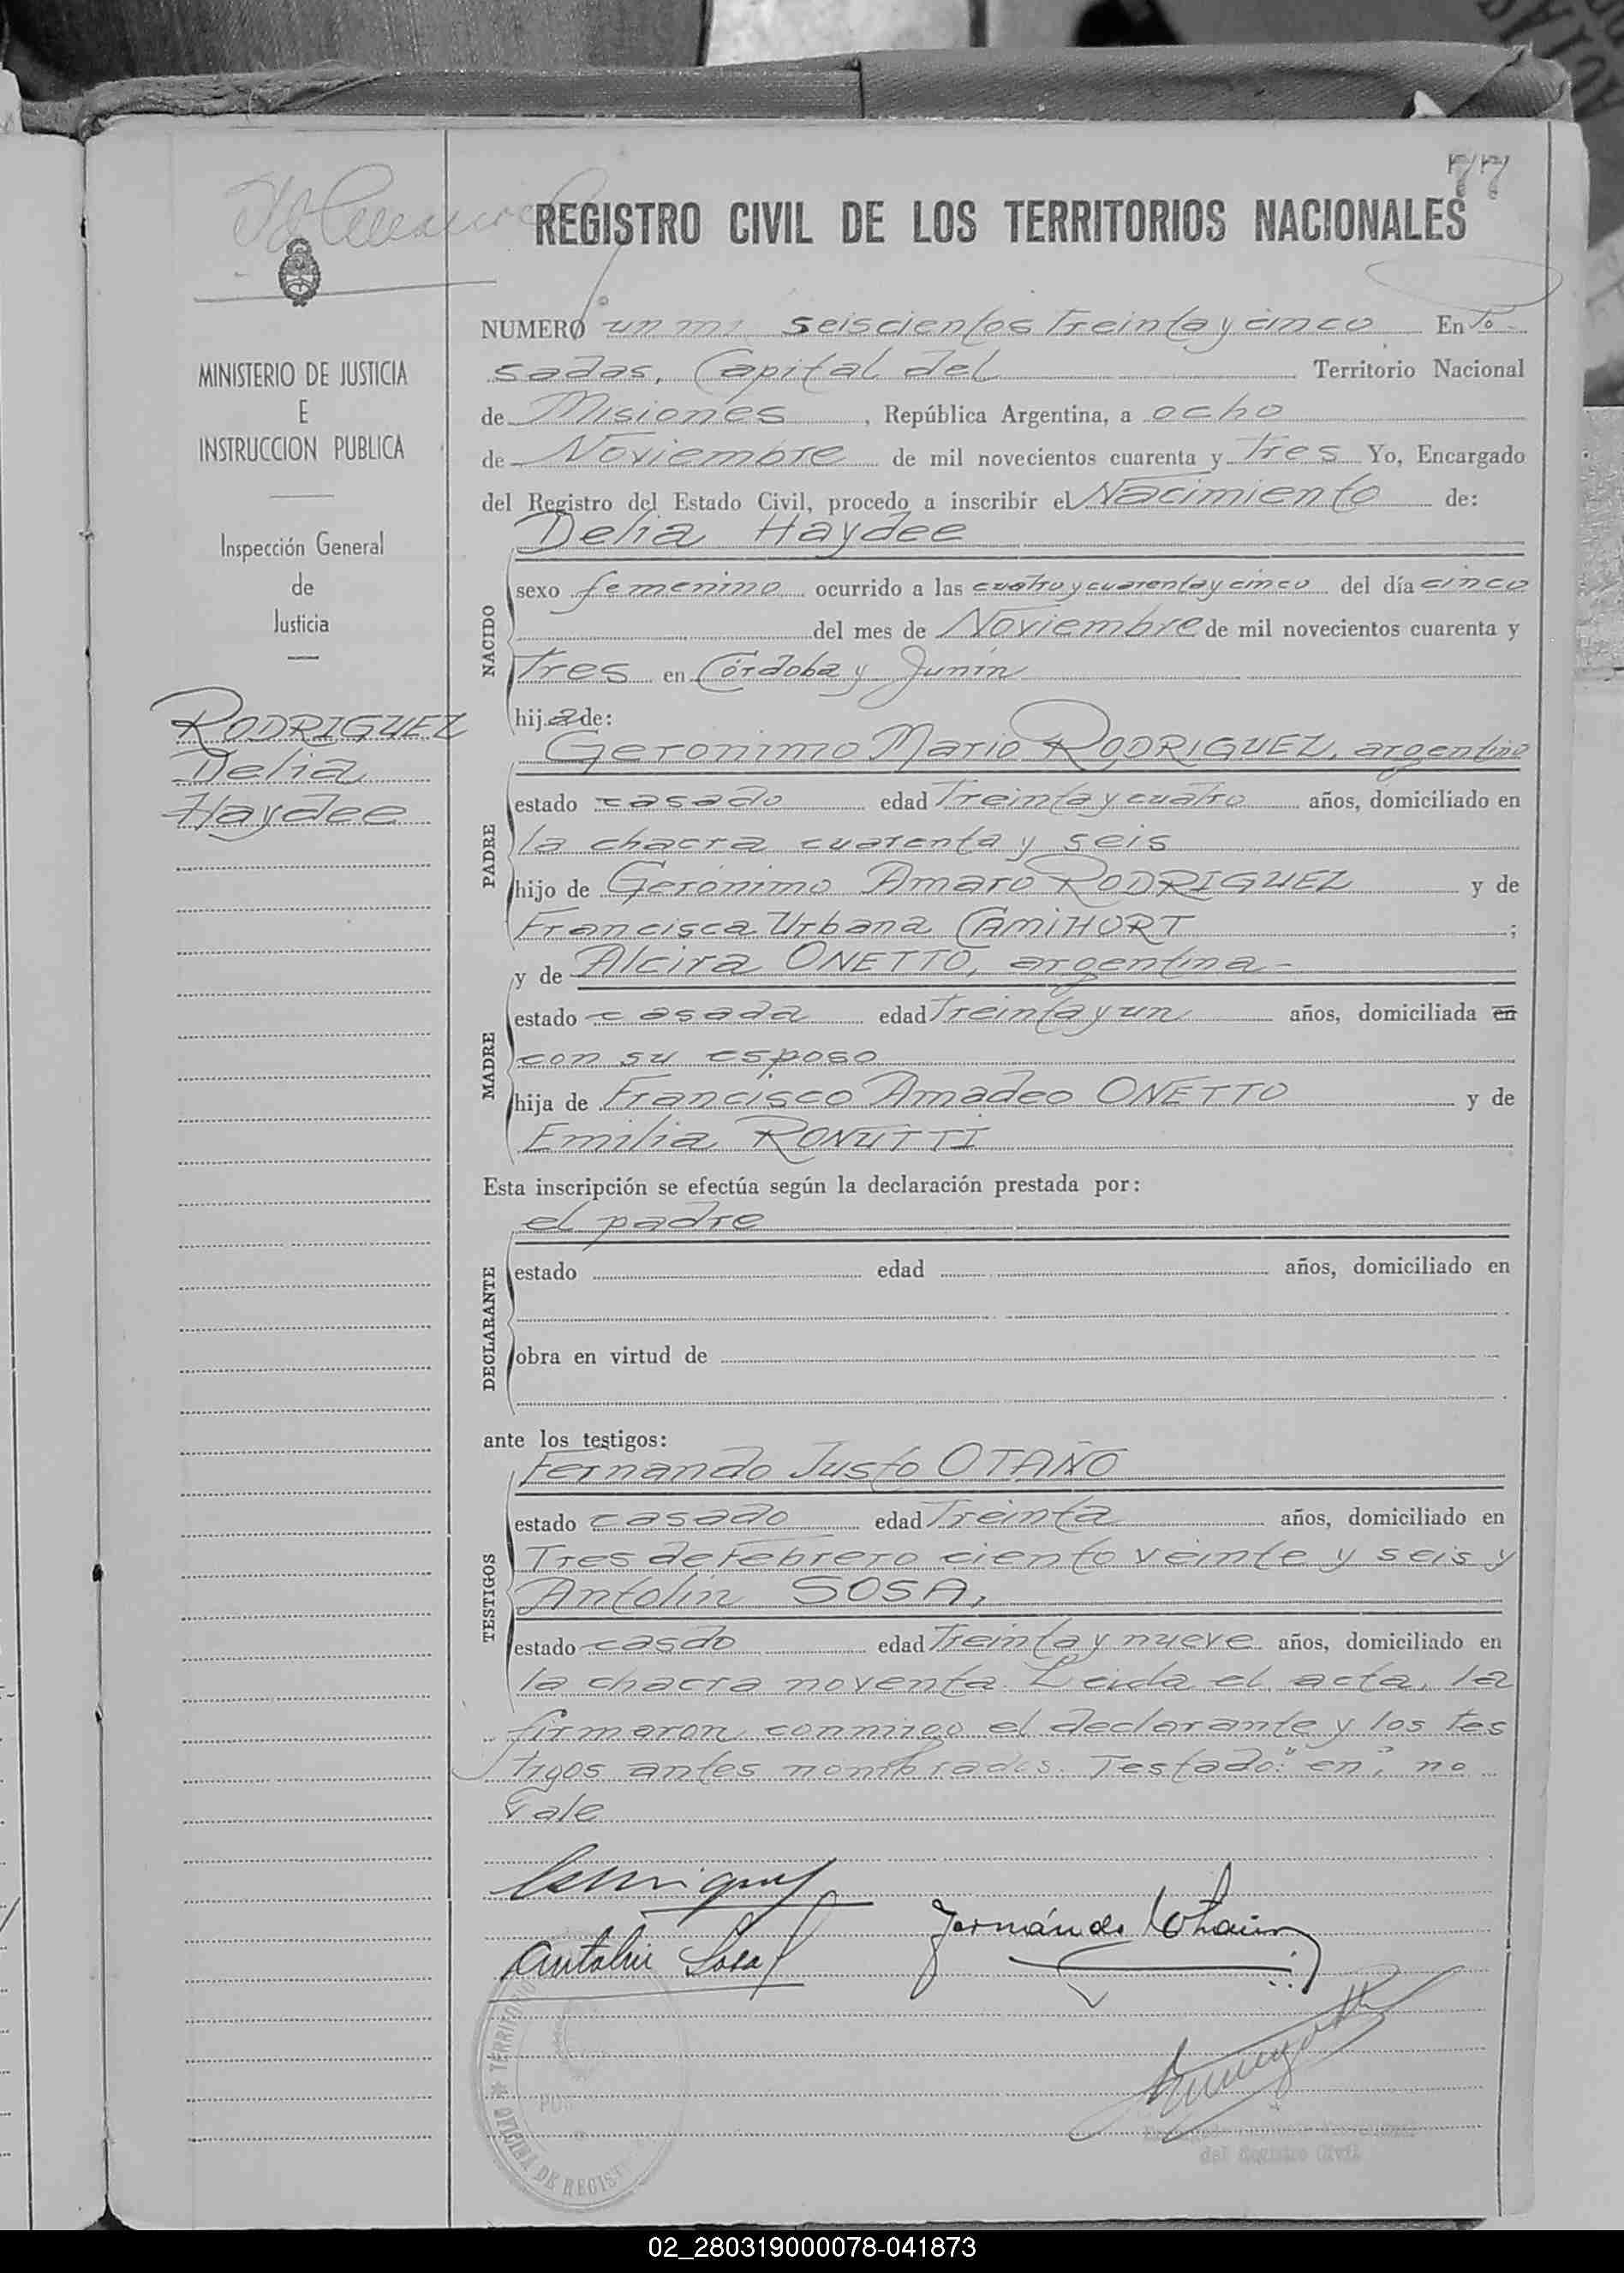 77
REGISTRO CIVIL DE LOS TERRITORIOS NACIONALES
MINISTERIO DE JUSTICIA
E
INSTRUCCION PUBLICA
Inspección General
de
Justicia
RODRIGUEZ
Delia
Haydee
NUMERO un mil seiscientos treinta y cinco En Po-
sadas, Capital del Territorio Nacional
de Misiones, República Argentina, a ocho
de Noviembre de mil novecientos cuarenta y tres Yo, Encargado
del Registro del Estado Civil, procedo a inscribir el Nacimiento de:
Delia Haydee
NACIDO
sexo femenino ocurrido a las cuatro y cuarenta y cinco del día cinco
del mes de Noviembre de mil novecientos cuarenta y
tres en Córdoba y Junín
hija de:
Geronimo Mario RODRIGUEZ, argentino
PADRE
estado casado edad treinta y cuatro años, domiciliado en
la chacra cuarenta y seis
hijo de Gerónimo Amaro RODRIGUEZ y de
Francisca Urbana CAMIHORT ;
y de Alcira ONETTO, argentina-
MADRE
estado casada edad treinta y un años, domiciliada en
con su esposo
hija de Francisco Amadeo ONETTO y de
Emilia RONUTTI
Esta inscripción se efectúa según la declaración prestada por:
el padre
DECLARANTE
estado edad años, domiciliado en
obra en virtud de
ante los testigos:
Fernando Justo OTAÑO
TESTIGOS
estado casado edad treinta años, domiciliado en
Tres de Febrero ciento veinte y seis y
Antolín SOSA,
estado casdo edad treinta y nueve años, domiciliado en
la chacra noventa. Leida el acta, la
firmaron conmigo el declarante y los tes
tigos antes nombrados. Testado: "en", no
vale
Antolin Sosa
Fernándo Otaño
OFICINA DE REGIST
TERRITORIO
del Registro Civil
02_280319000078-041873